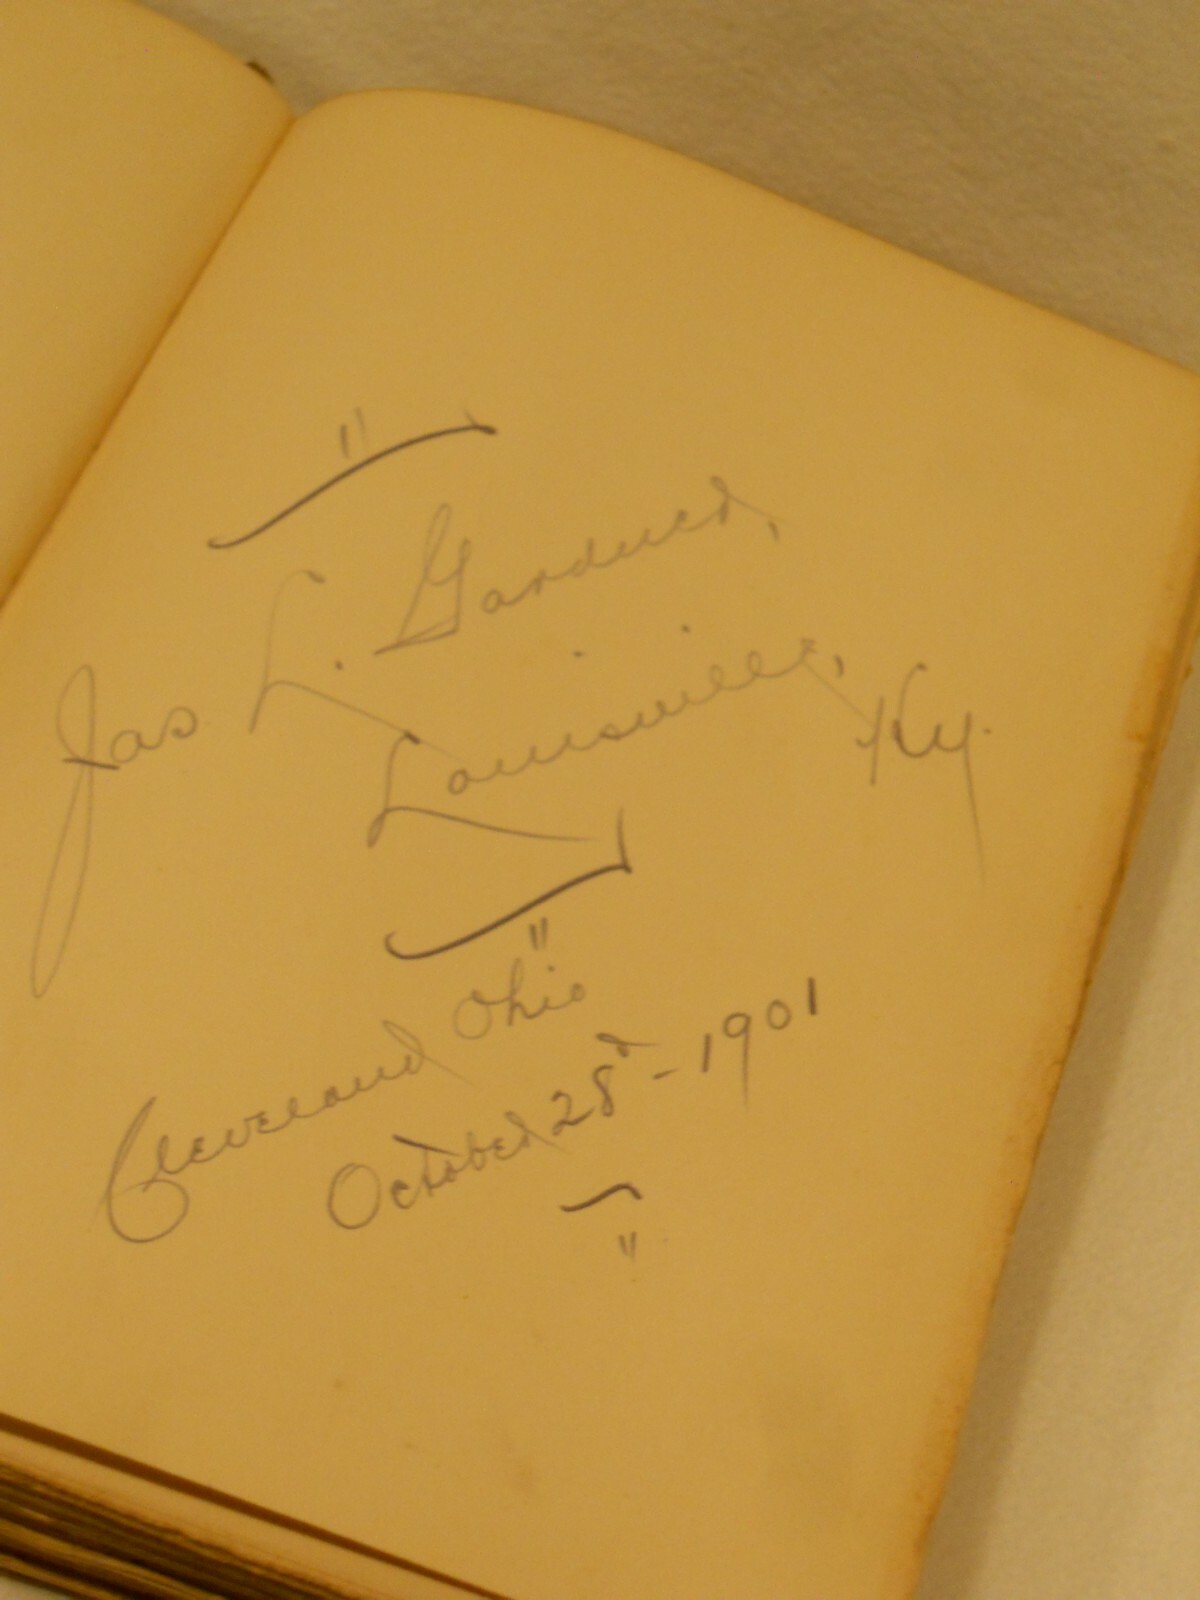 "
Jas L. Gardner,
Louisville, Ky.
"
Cleveland Ohio
October 28d - 1901
"